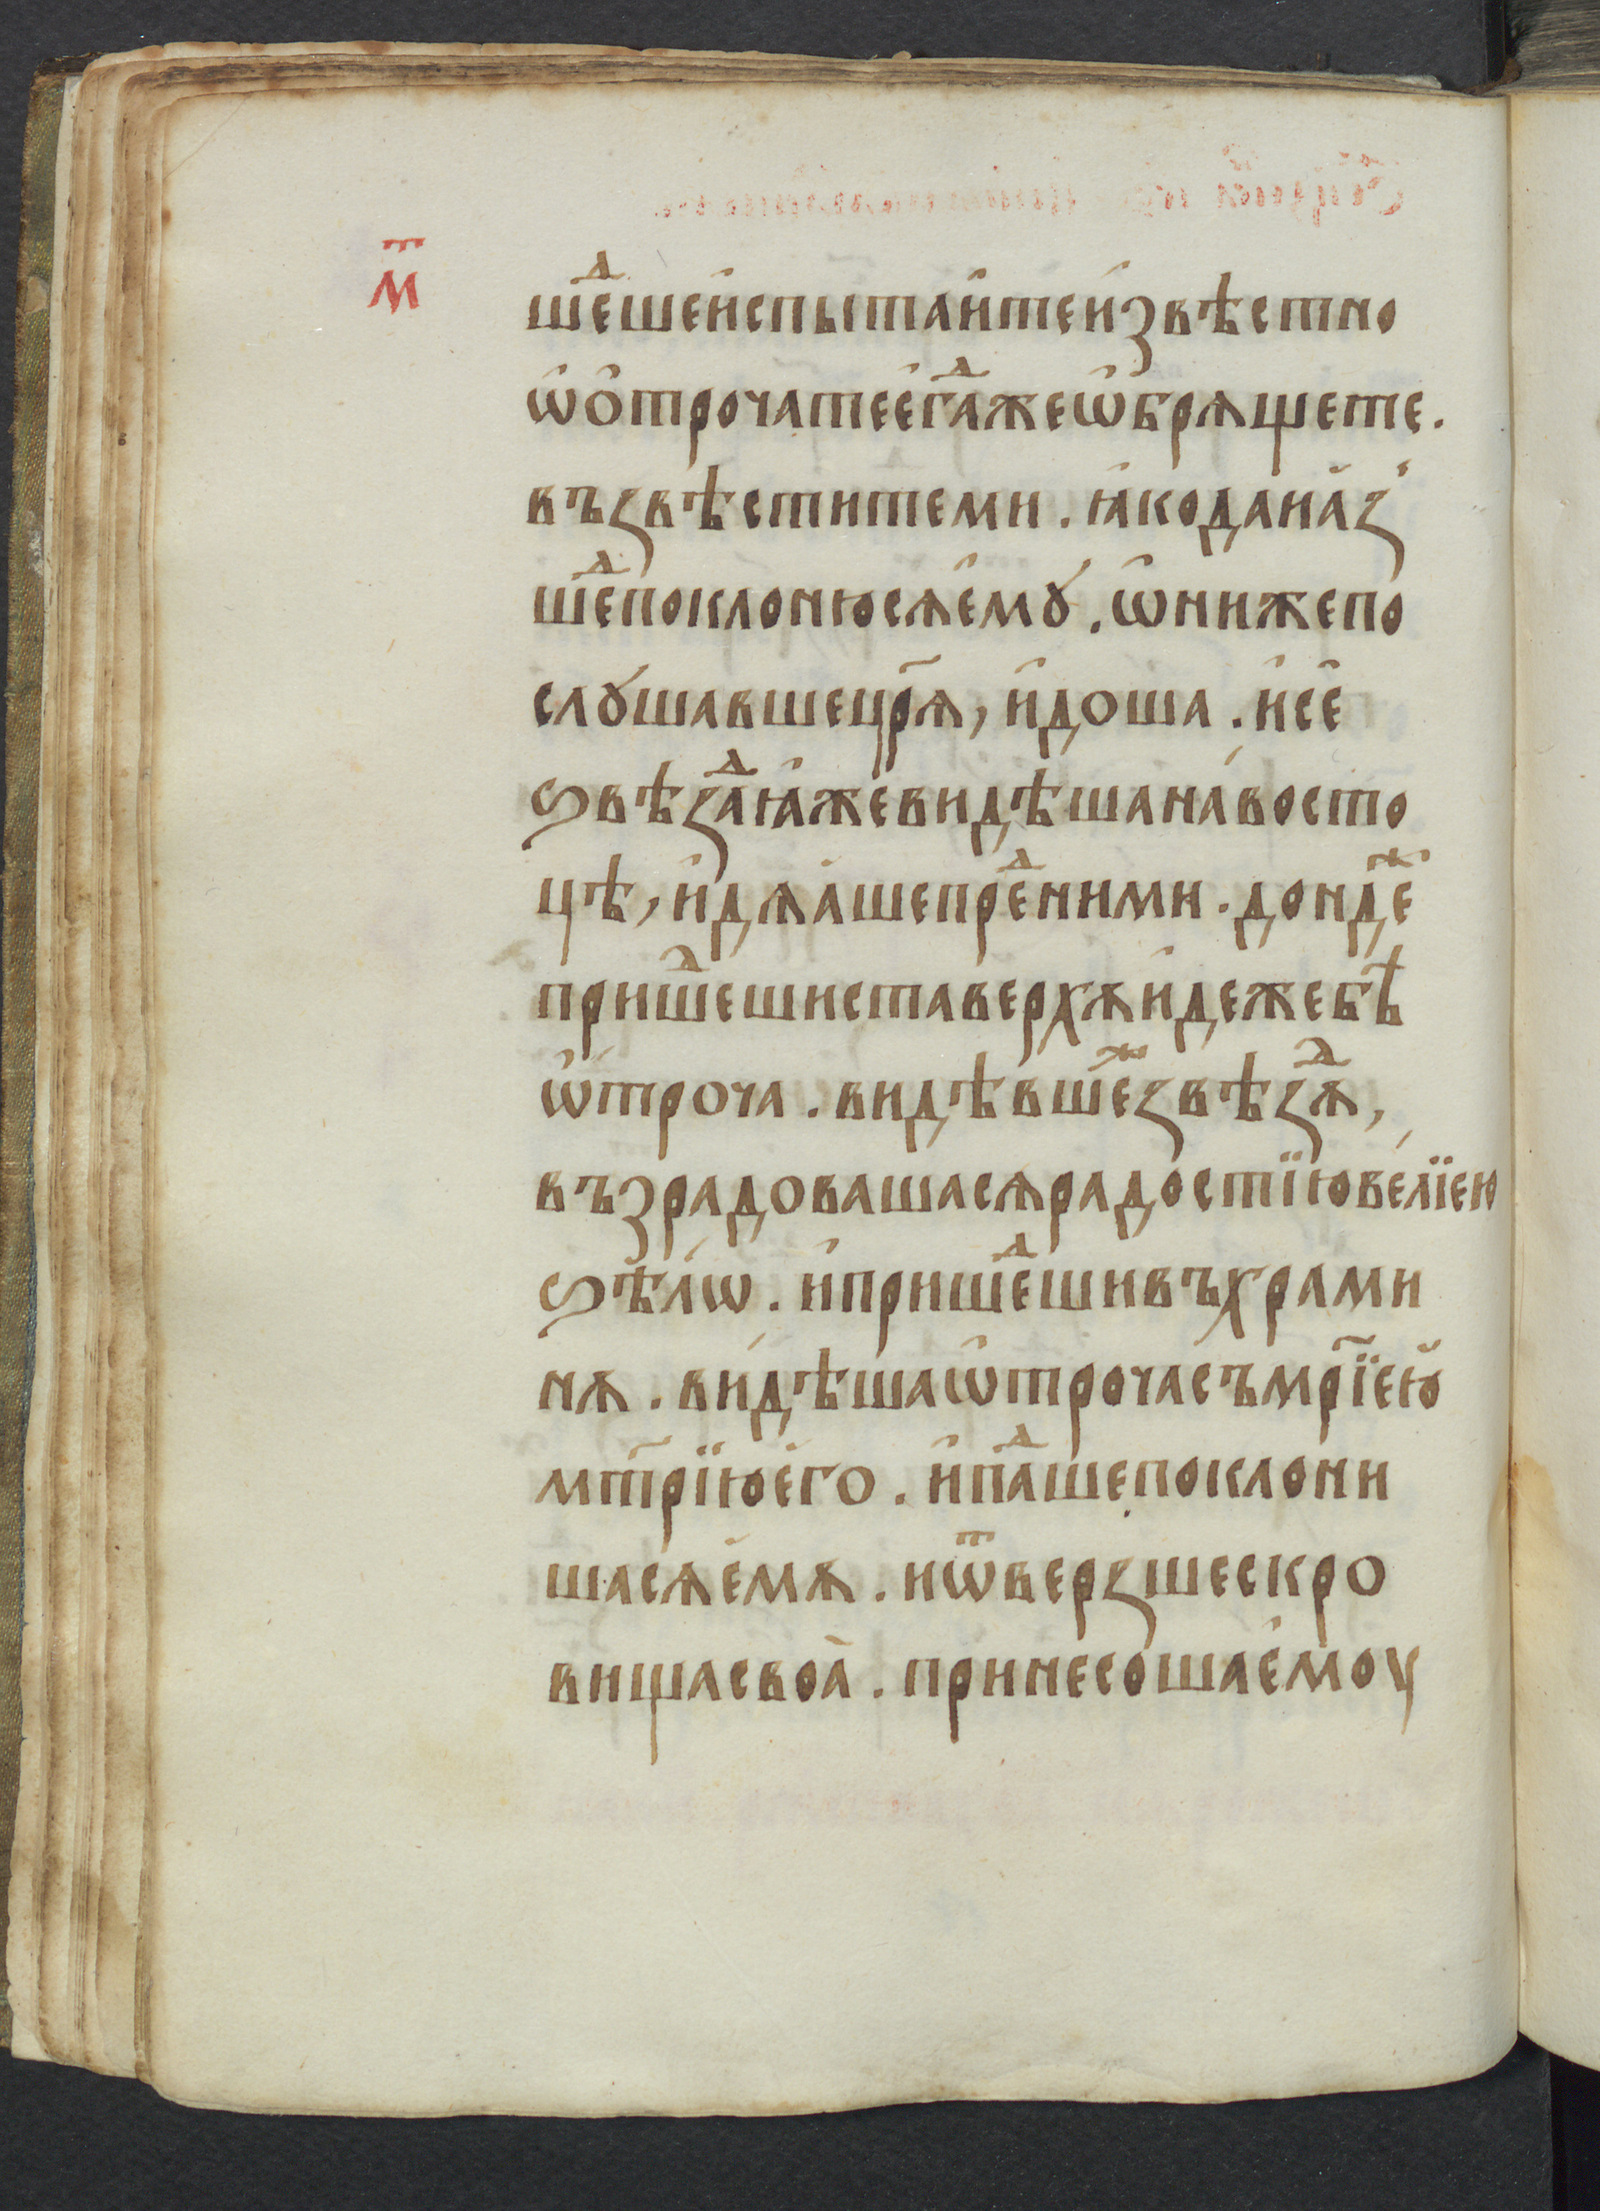 м҃
шеⷣше и҆спыта́и҆те и҆звѣстно
ѡ҆ о҆трочате е҆гⷣа же ѡ҆брѧщете.
въꙁвѣстите ми. ꙗ҆ко да и҆ а҆ꙁ̾
шеⷣ поклоню сѧ е҆мꙋ́. ѡ҆ни же по
слꙋ́шавше цр҃ѧ, и҆доша. и҆ се҆
ѕвѣꙁⷣа ꙗ҆же видѣша на́ восто
цѣ, и҆дѧ́а҆ше преⷣ ними. дондеⷤ
пришеⷣши ста верхꙋ̀ и҆де же бѣ̀
ѡ҆троча. видѣвшеⷤ ꙁвѣꙁⷣѫ,
възрадоваша сѧ радостїю ве́лїею
ѕѣлѡ̀. и҆ пришеⷣши въ храми
нѫ. ви́дѣша ѡ҆троча съ мр҃їею҆
мт҃рїю е҆го. и҆ паⷣше поклони
ша сѧ е҆мѫ. и ѿверꙁше скро
вища своа̀. принесоша е҆моу